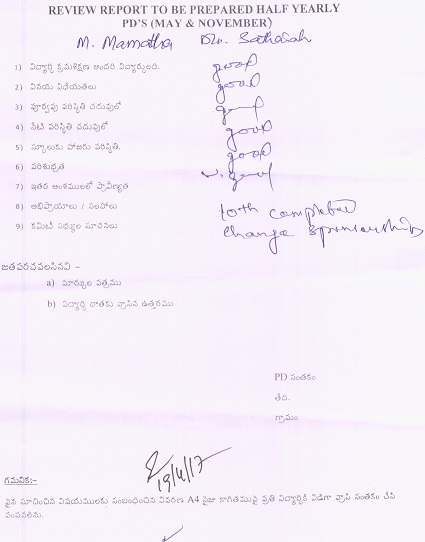 REVIEW REPORT TO BE PREPARED HALF YEARLY
PD'S (MAY & NOVEMBER)
M. Mamatha D/o. Sathaiah
1) విద్యార్థి క్రమశిక్షణ అందరి విద్యార్థులది. good
2) వినయ విధేయతలు good
3) పూర్వపు పరిస్థితి చదువులో good
4) నేటి పరిస్థితి చదువులో good
5) స్కూలుకు హాజరు పరిస్థితి. good
6) పరిశుభ్రత v. good
7) ఇతర అంశములలో ప్రావీణ్యత
8) అభిప్రాయాలు / సలహాలు 10th completed
9) కమిటి సభ్యుల సూచనలు change sponsorship
జతపరచవలసినవి :-
a) మార్కుల పత్రము
b) విద్యార్థి దాతకు వ్రాసిన ఉత్తరము
PD సంతకం
తేది.
గ్రామం
19/4/17
గమనిక:-
పైన సూచించిన విషయములకు సంబంధించిన వివరణ A4 సైజు కాగితముపై ప్రతి విద్యార్థికి విడిగా వ్రాసి సంతకం చేసి
పంపవలెను.